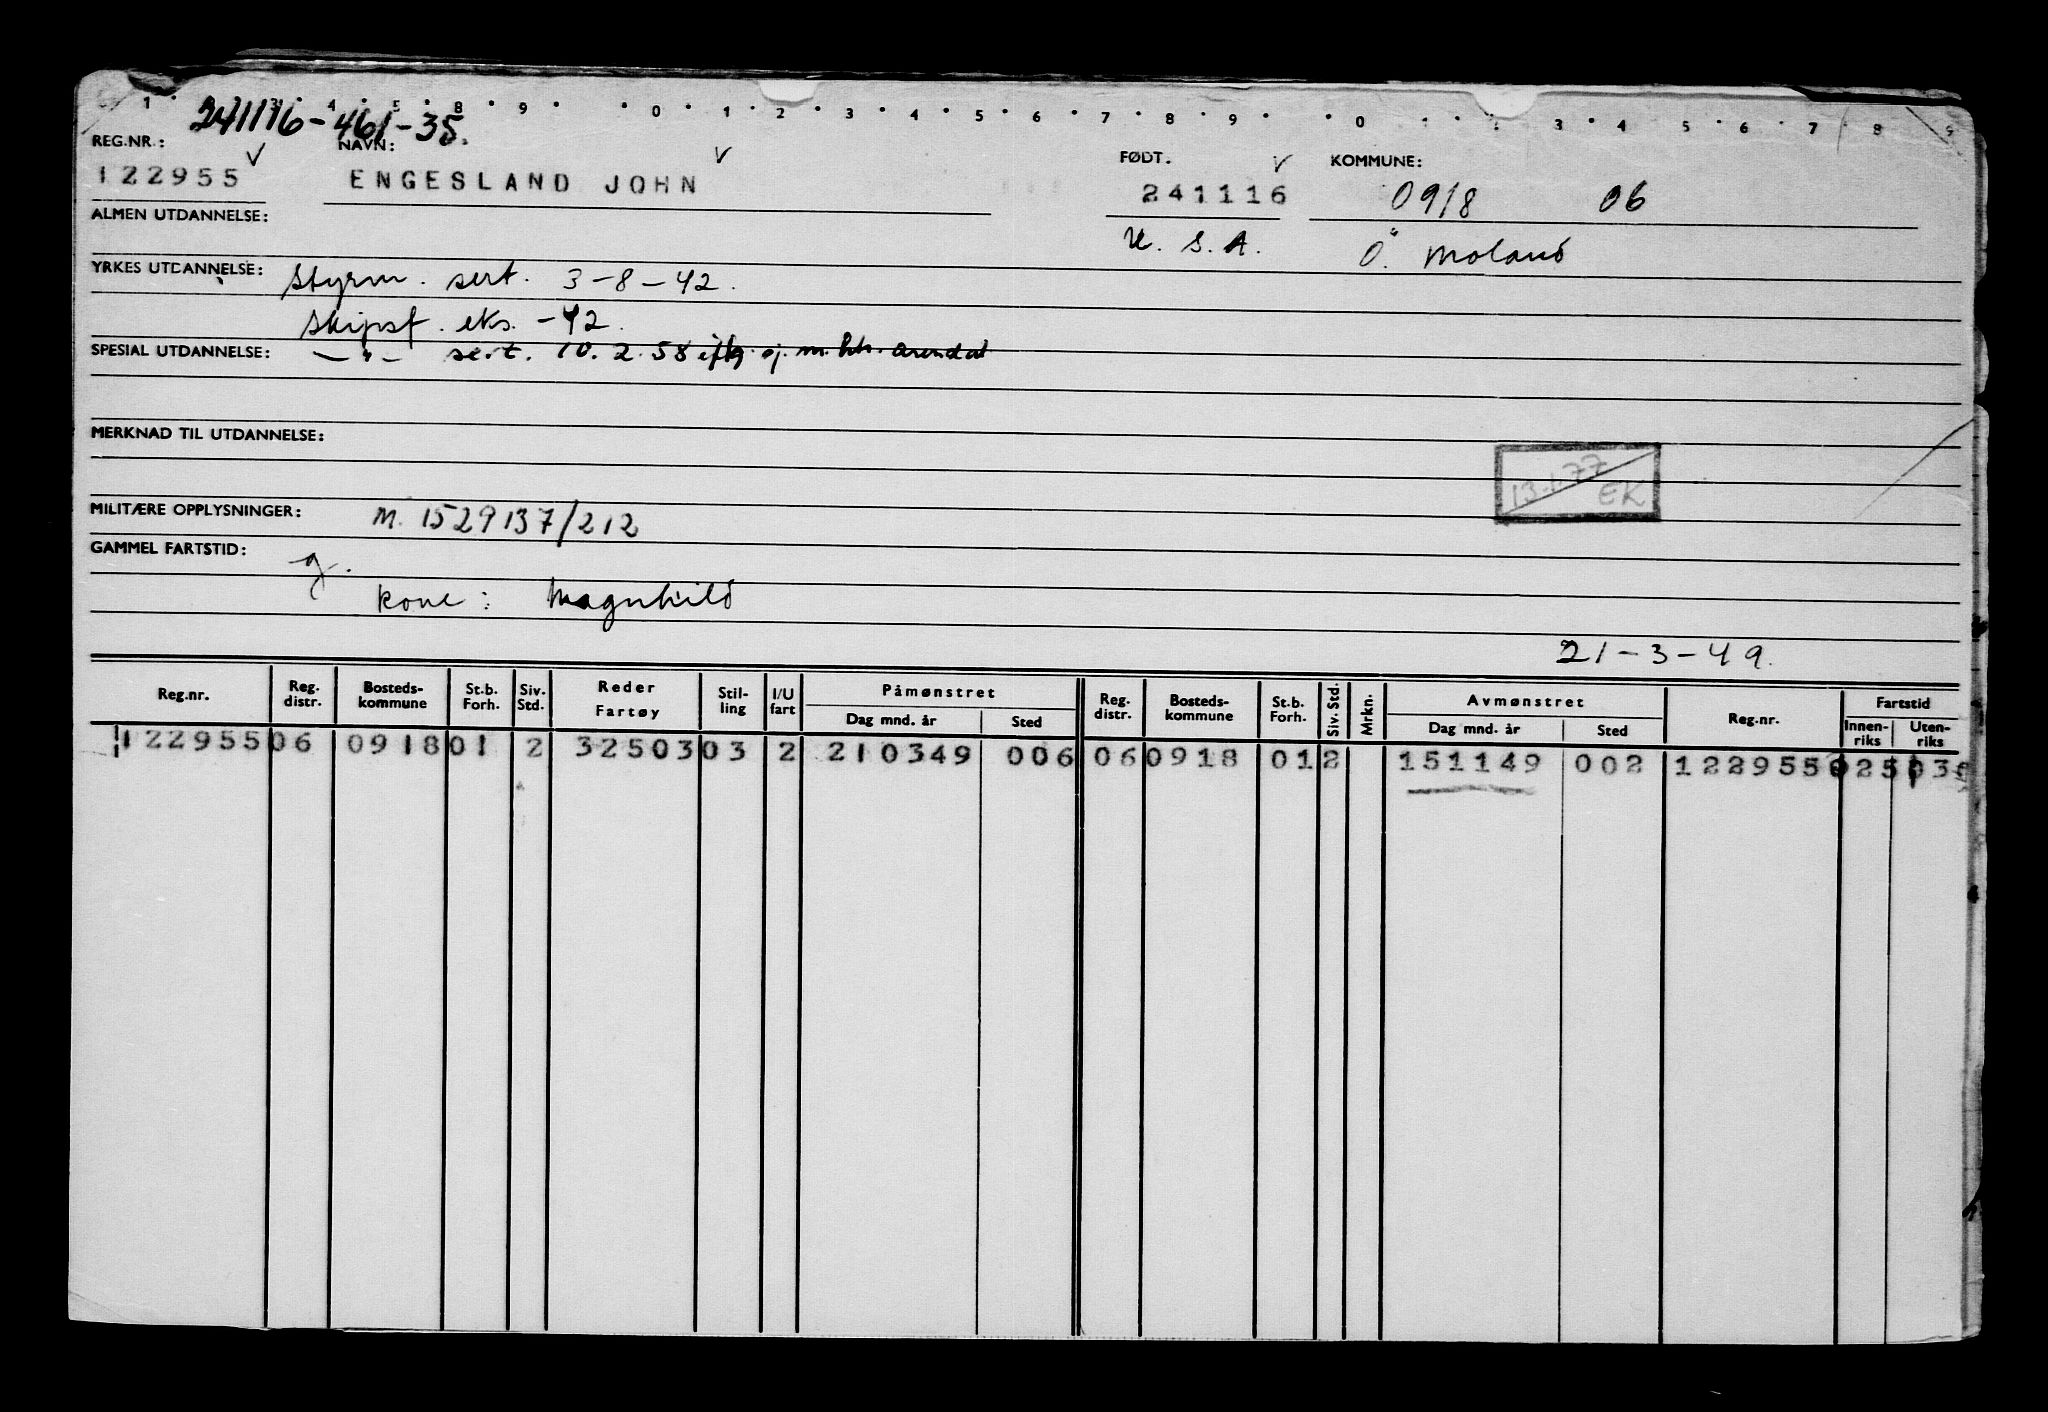 241116-461-35.
REG.NR.: NAVN: FØDT. KOMMUNE:
122955 ENGESLAND JOHN 241116 0918 06
ALMEN UTDANNELSE: U. S. A. Ö. Moland
YRKES UTDANNELSE: Styrm. sert. 3-8-42.
Skipsf. eks. -42.
SPESIAL UTDANNELSE: —"— sert. 10.2.58 Arendal
MERKNAD TIL UTDANNELSE:
13.1.77 EK
MILITÆRE OPPLYSNINGER: M. 1529137/212
GAMMEL FARTSTID: g.
Kone: Magnhild
21-3-49.
Reg.nr. Reg. distr. Bosteds-kommune St.b. Forh. Siv. Std. Reder Fartøy Stil-ling I/U fart Påmønstret Dag mnd. år Sted Reg. distr. Bosteds-kommune St.b. Forh. Siv. Std. Mrkn. Avmønstret Dag mnd. år Sted Reg.nr. Fartstid Innen-riks Uten-riks
122955 06 0918 01 2 32503 03 2 210349 006 06 0918 01 2 151149 002 122955